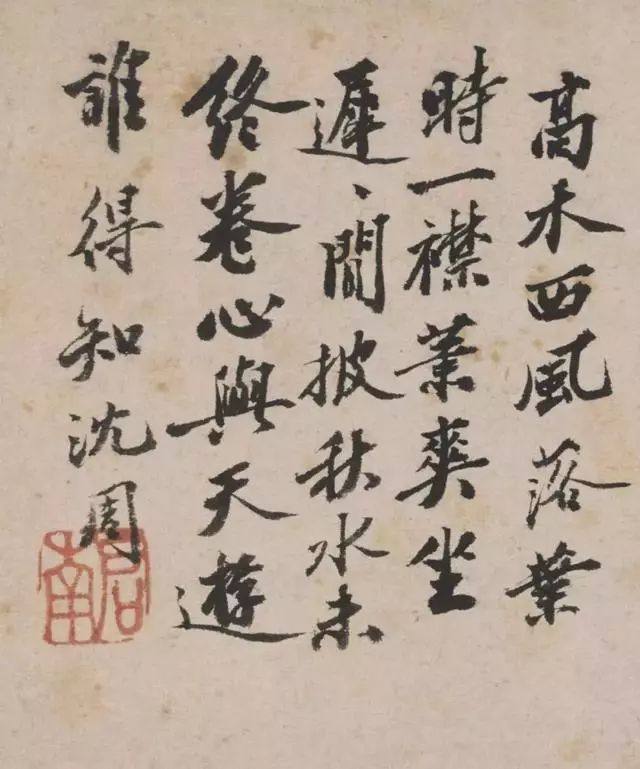 高木西風落葉
時一襟蕭爽坐
遲〻閒披秋水未
終卷心與天遊
誰得知沈周
启南